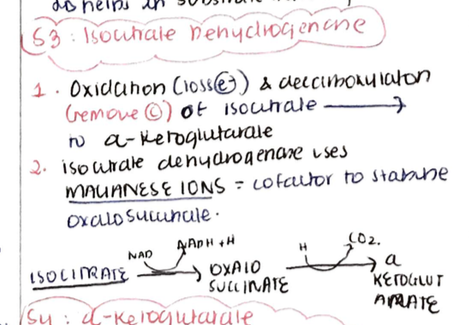 as helps in substrate
S3 : Isocitrate Dehydrogenase
1. Oxidation (loss e⁻) & decarboxylation
(remove C) of isocitrate →
to α-Ketoglutarate
2. isocitrate dehydrogenase uses
MAUANESE IONS = cofactor to stabilise
oxalosuccinate.
NAD NADH + H H CO2.
ISOCITRATE → OXALO → α
SUCCINATE KETOGLUT
ARATE
S4 : α-Ketoglutarate